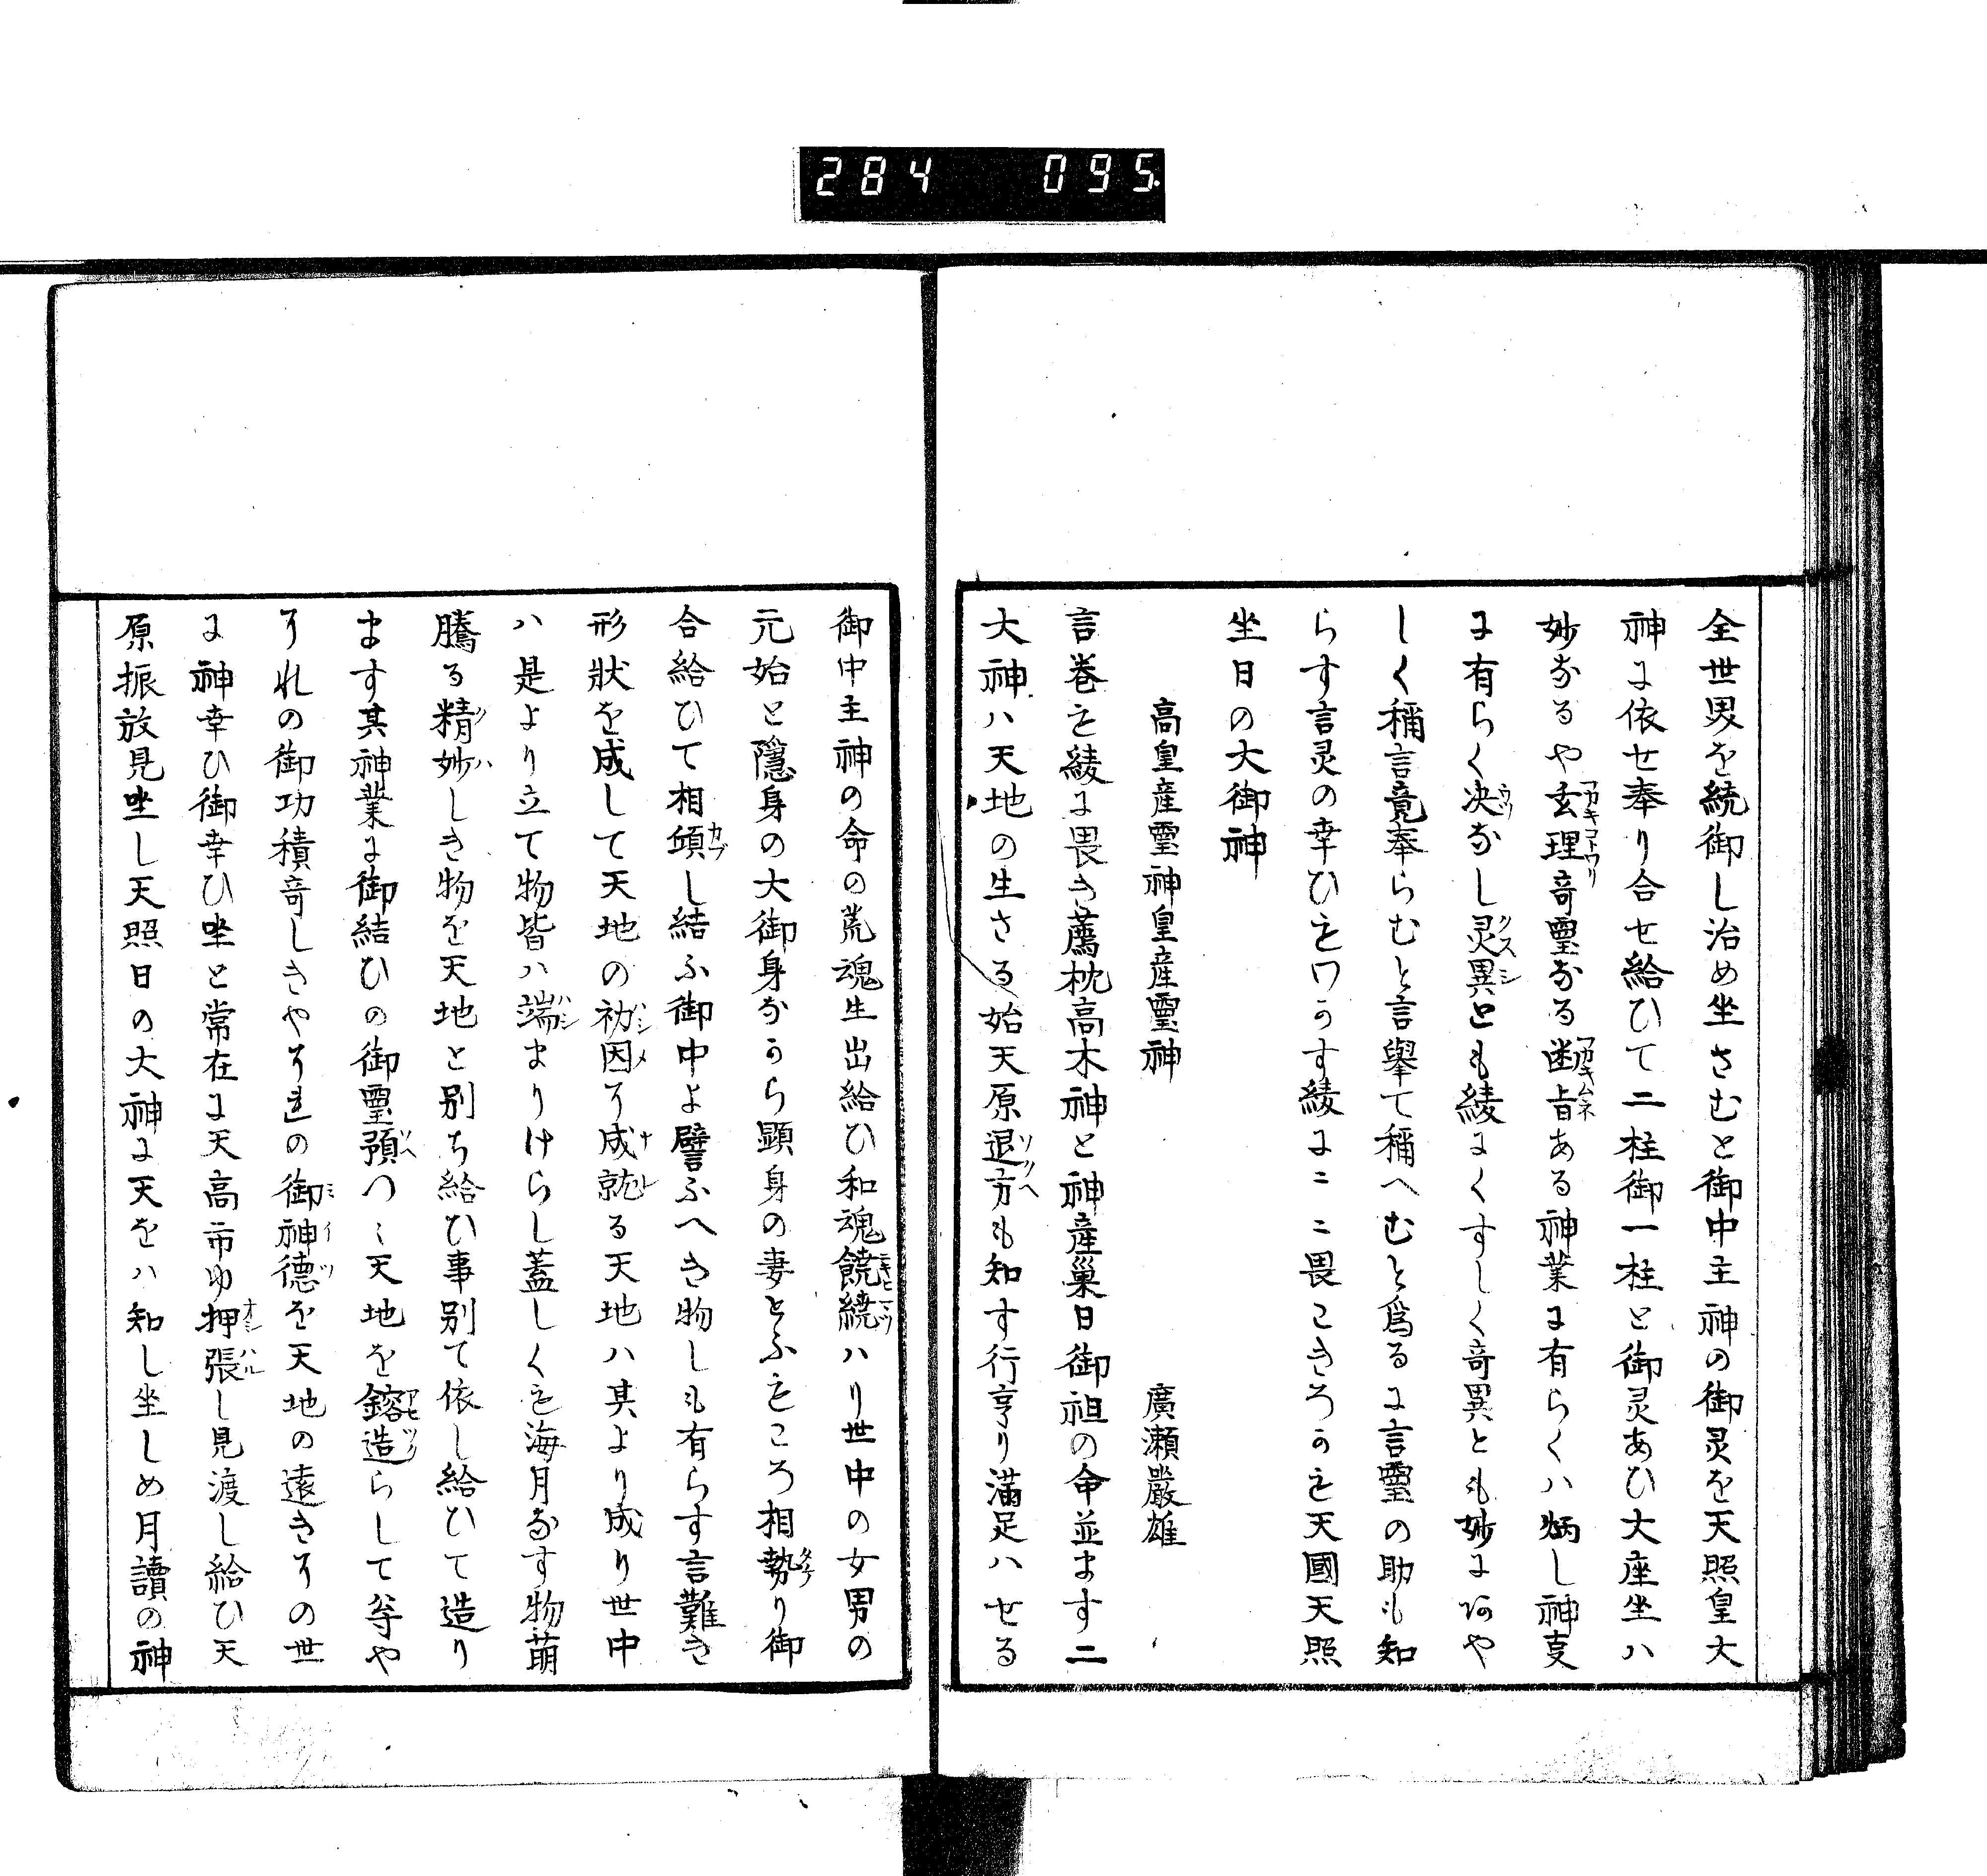 284 095
全世男を統御し治め坐さむと御中主神の御灵を天照皇大
神に依せ奉り合せ給ひて二柱御一柱と御灵あひ大座坐ハ
妙なるや玄理奇靈なる幽旨ある神業に有らくハ炳し神事
に有らく決なし灵異とも綾にくすしく奇異とも妙にあや
しく稱言竟奉らむと言擧て稱へむと爲るに言靈の助も知
らす言灵の幸ひもわかす綾にこゝ畏こきろかも天國天照
坐日の大御神
高皇産靈神皇産靈神
廣瀬嚴雄
言巻も綾に畏き薦枕高木神と神産巣日御祖の命並ます二
大神ハ天地の生さる始天原退方も知す行亨り滿足ハせる
御中主神の命の荒魂生出給ひ和魂饒繞ハり世中の女男の
元始と隱身の大御身なから顕身の妻とふもころ相勢り御
合給ひて相傾し結ふ御中よ譬ふへき物しも有らす言難き
形狀を成して天地の初因そ成就る天地ハ其より成り世中
ハ是より立て物皆ハ端まりけらし蓋しくも海月なす物萠
騰る精妙しき物を天地と別ち給ひ事別て依し給ひて造り
ます其神業に御結ひの御靈預つゝ天地を鎔造らして奇や
それの御功積奇しきやそれの御神德を天地の遠きその世
に神幸ひ御幸ひ坐と常在に天高市ゆ押張し見渡し給ひ天
原振放見坐し天照日の大神に天をハ知し坐しめ月讀の神